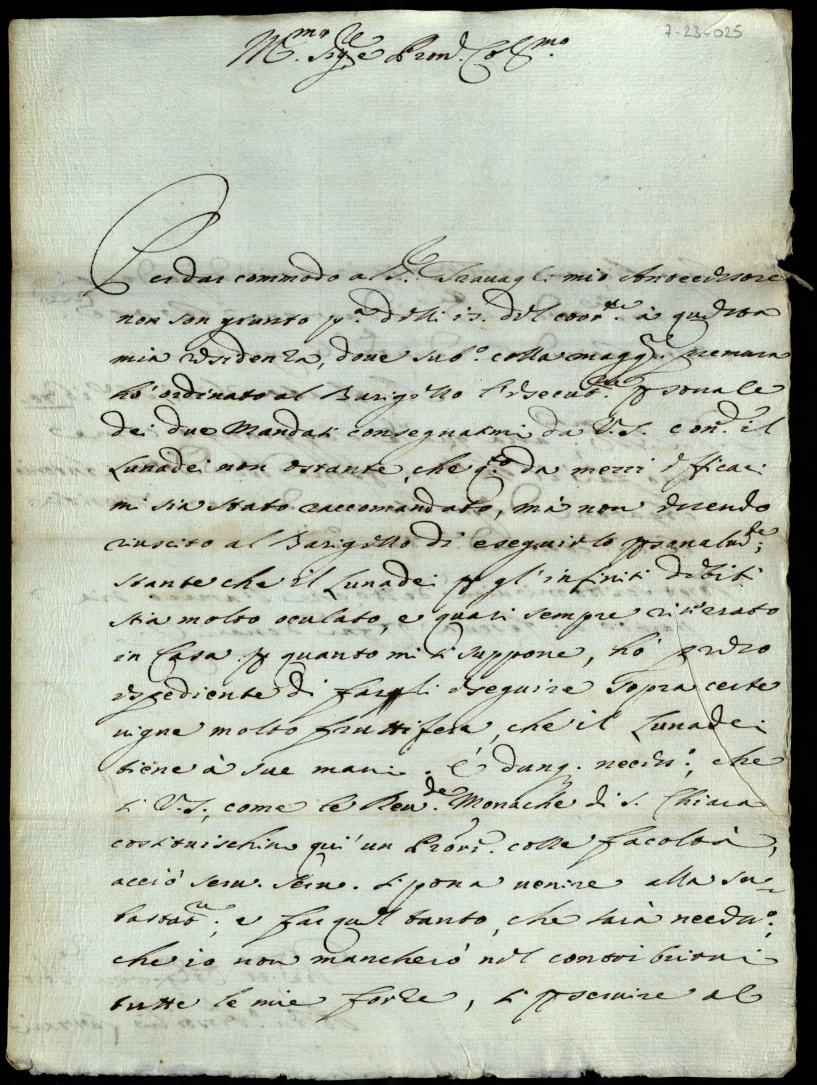 7-23-025
M.mo Sig.re e Pron. Col.mo
Per dar commodo al S.r Travagli mio Antecessore
non son giunto p.a delli 15. del corr.te à questa
mia residenza, dove sub.o colla magg.r premura
hò ordinato al Barigello l'esecut.ne p̱sonale
dei due Mandati consegnatimi da V.S. con.o il
Lunadei non ostante, che q.to da mezzi efficaci
mi sia stato raccomandato, mà non essendo
riuscito al Barigello di eseguirlo p̱sonalm.te;
stante che il Lunadei p̱ gl'infiniti debiti
stia molto oculato, e quasi sempre ritirato
in Casa p̱ quanto mi si suppone, hò preso
espediente di fargli eseguire sopra certe
vigne molto fruttifere, che il Lunadei
tiene à sue mani. È dunq. necess.o, che
sì V.S., come le Reu.de Monache di S. Chiara
costituischino quì un Proc.re colle facoltà,
acciò seru. seru. si possa venire alla su-
bastat.ne, e far quel tanto, che sarà necess.o,
che io non mancherò nel contribuirui
tutte le mie forze, sì p̱ seruire al